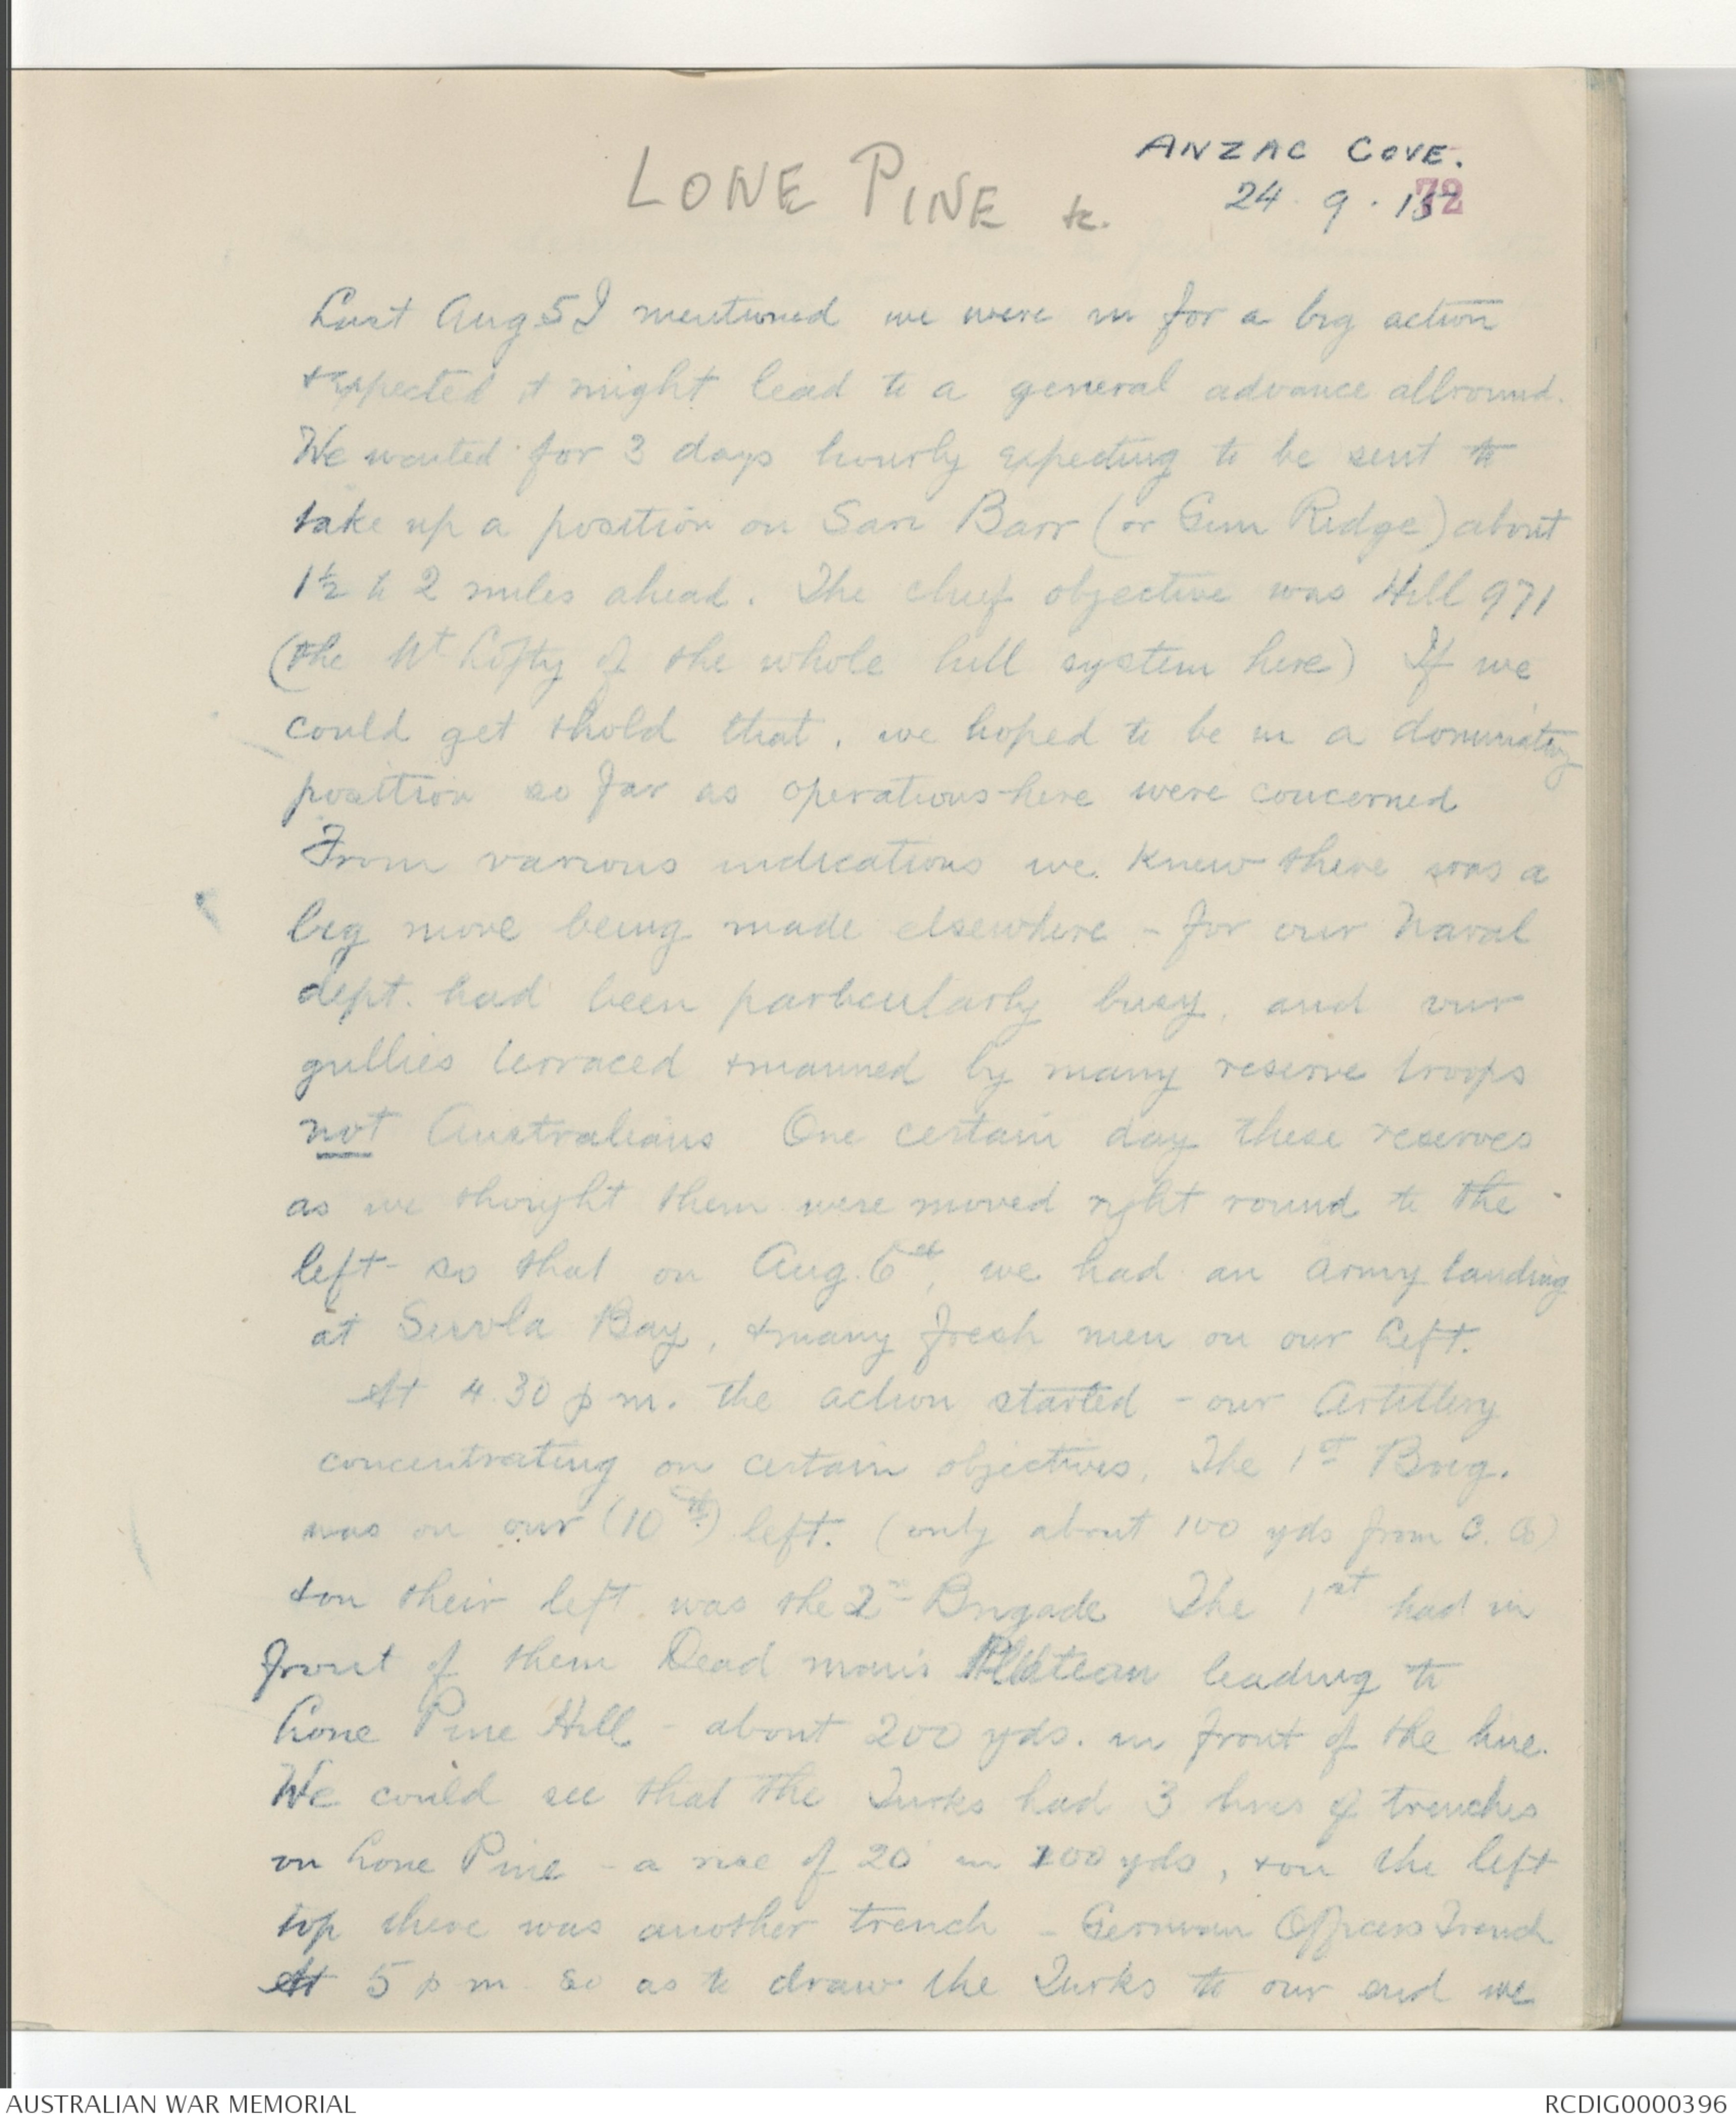 LONE PINE &c.
ANZAC COVE.
72
24. 9. 15
Last Aug 5 I mentioned we were in for a big action
& expected it might lead to a general advance allround.
We waited for 3 days hourly expecting to be sent to
take up a position on Sari Barr (or Gun Ridge) about
1½ to 2 miles ahead. The chief objective was Hill 971
(the Mt Lofty of the whole hill system here) If we
could get & hold that, we hoped to be in a dominating
position so far as operations here were concerned
From various indications we knew there was a
big move being made elsewhere - for our Naval
dept. had been particularly busy, and our
gullies terraced & manned by many reserve troops
not Australians One certain day these reserves
as we thought them were moved right round to the
left - so that on Aug. 6th, we had an army landing
at Suvla Bay, & many fresh men on our left.
At 4.30 p m. the action started - our Artillery
concentrating on certain objectives. The 1st Brig.
was on our (10th) left. (only about 100 yds from C. Co)
& on their left was the 2nd Brigade The 1st had in
front of them Dead man's Plateau leading to
Lone Pine Hill - about 200 yds. in front of the line.
We could see that the Turks had 3 lines of trenches
on Lone Pine - a rise of 20 in 200 yds, & on the left
top there was another trench - German Officers Trench
At 5 p m so as to draw the Turks to our end we
AUSTRALIAN WAR MEMORIAL
RCDIG0000396